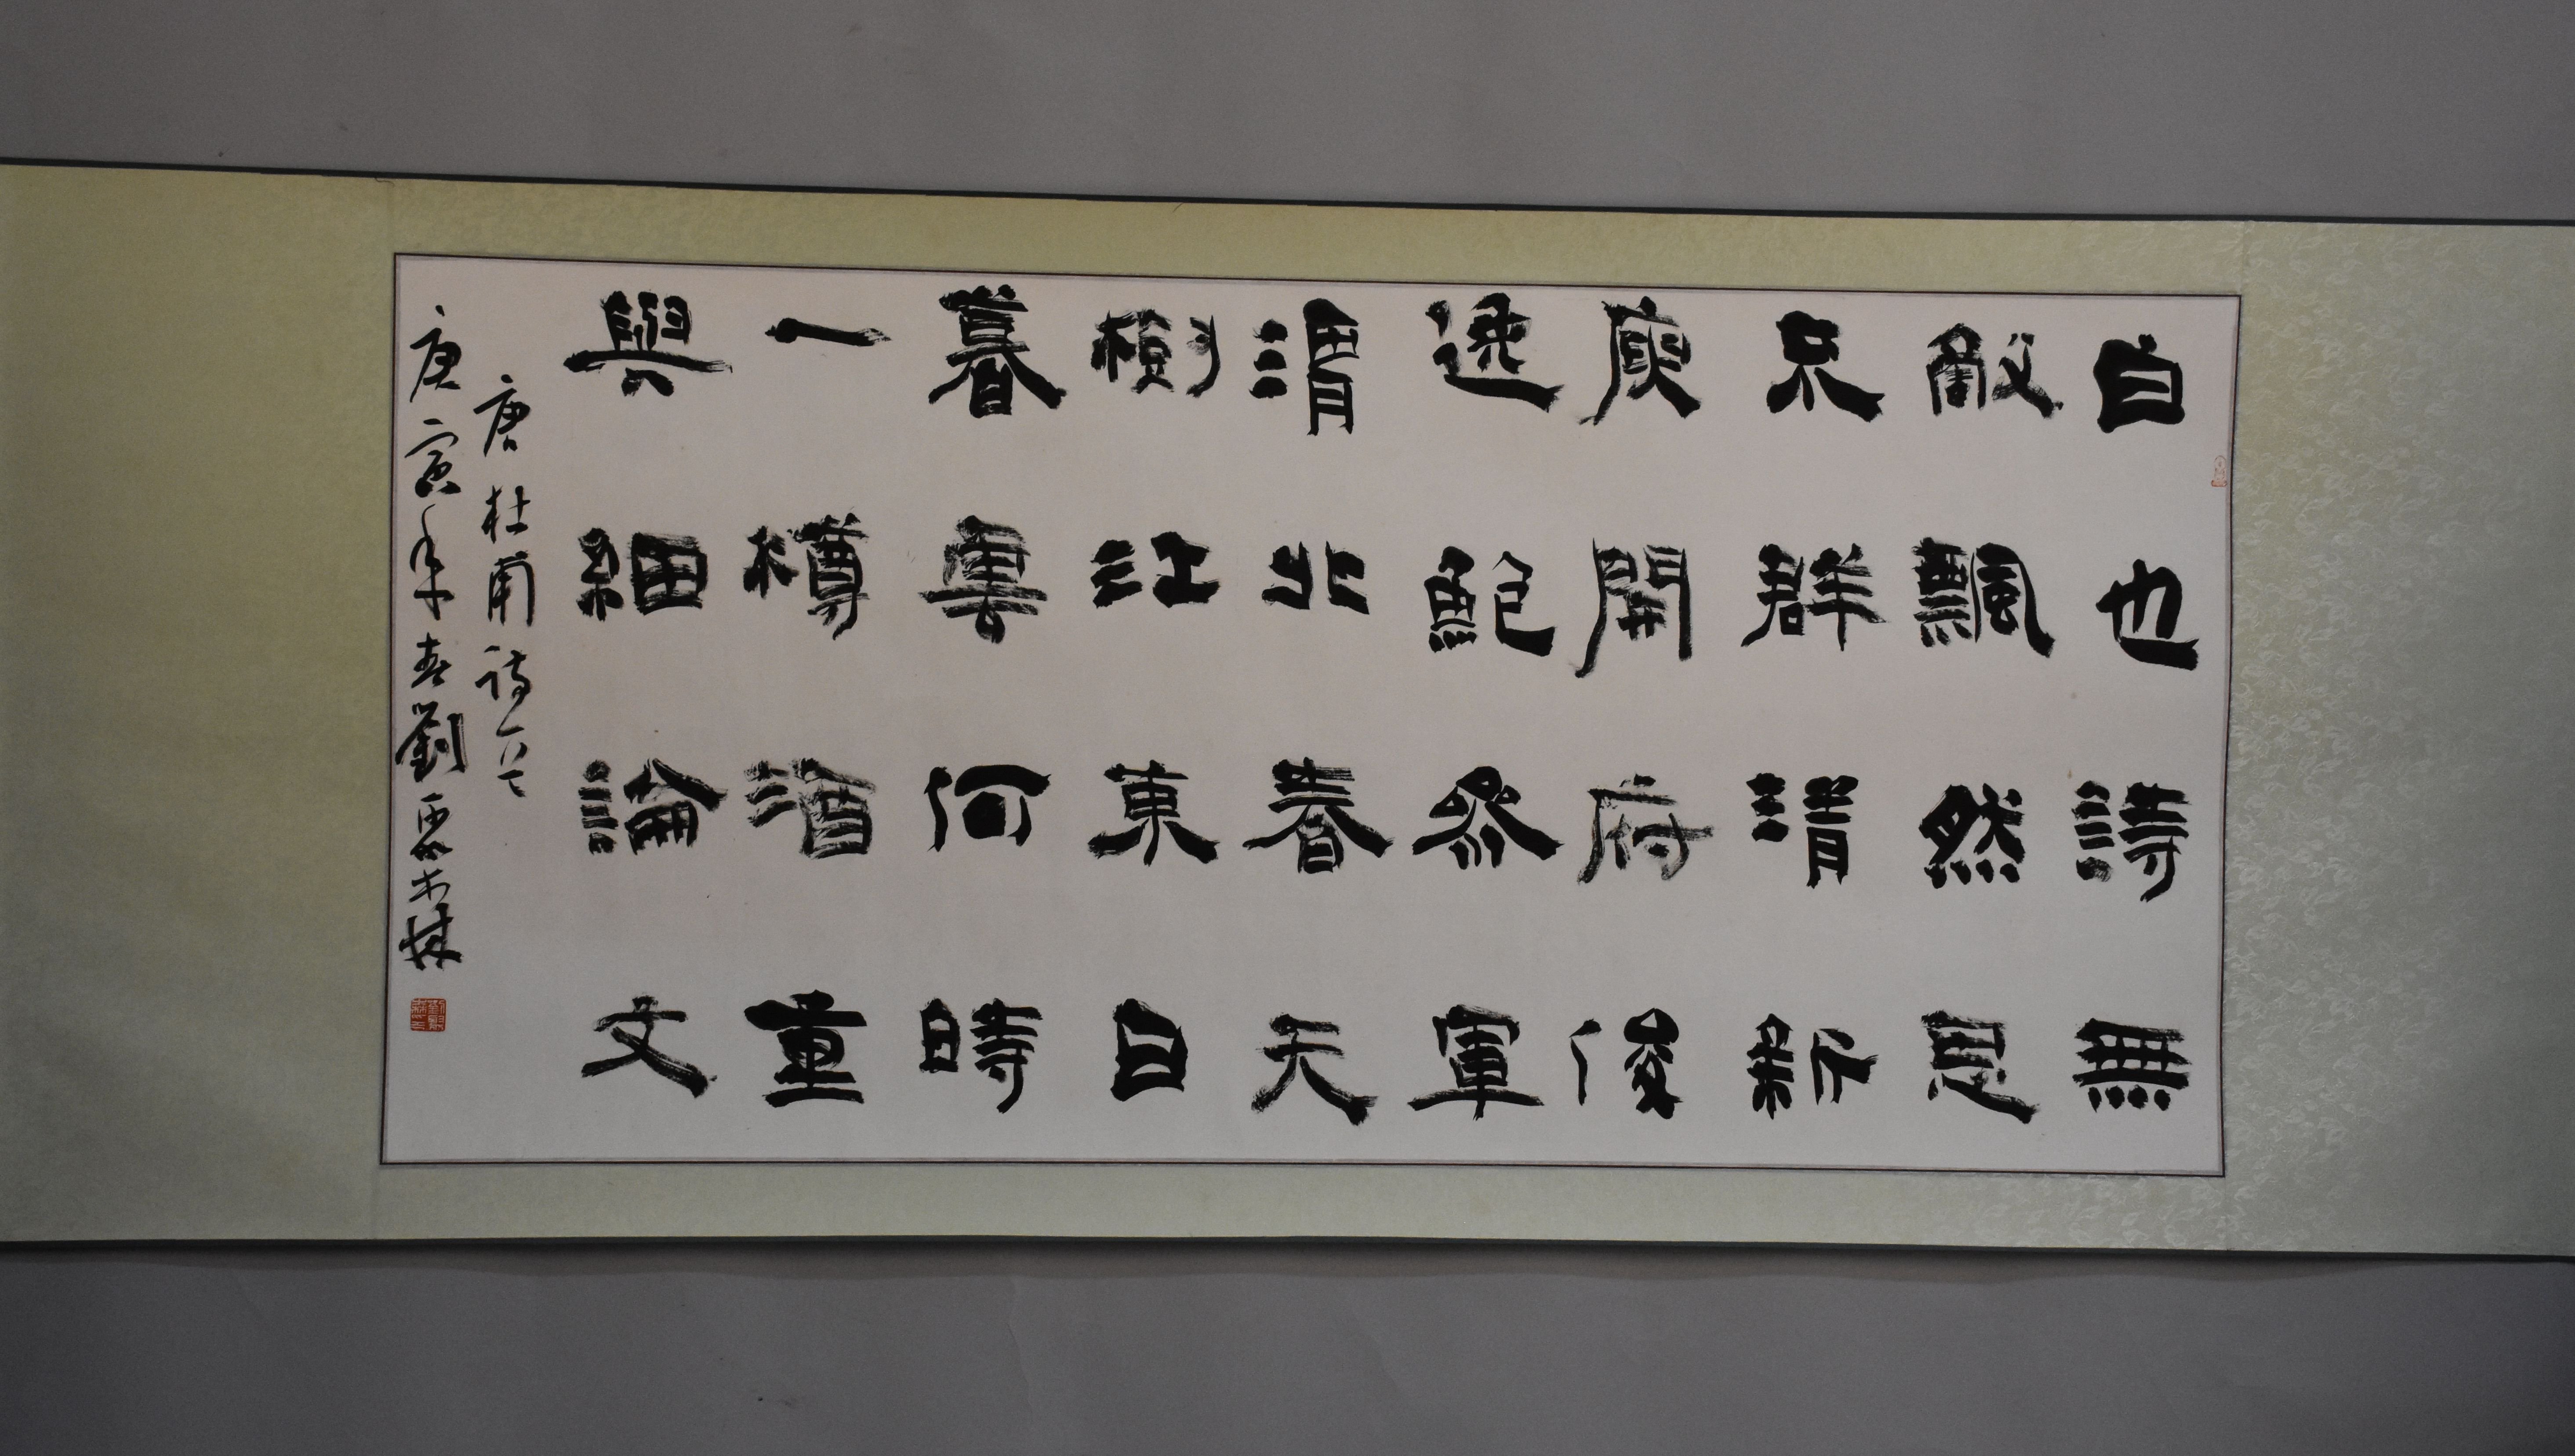 白也詩無
敵飄然思
只群清新
庾開府俊
逸鮑參軍
渭北春天
樹江東日
暮雲何時
一樽酒重
與細論文
唐杜甫詩一首
庚寅年春劉